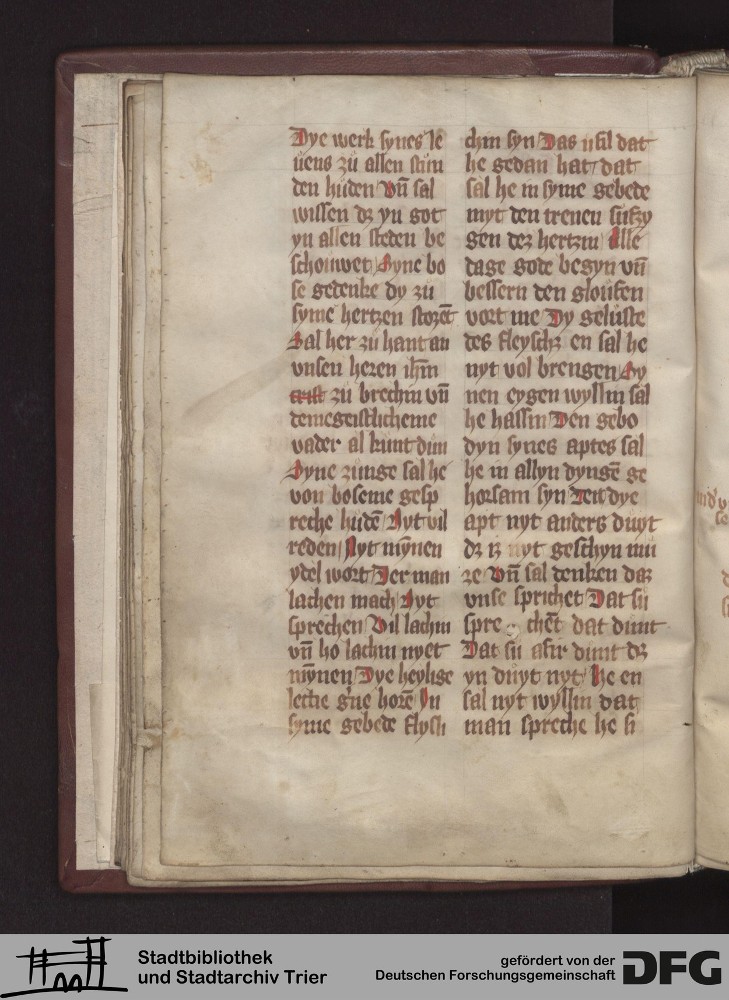 Dye werk synes le
uens zů allen stun
den hůden Vn̄ sal
wissen dz yn got
yn allen steden be
schouwet Syne bo
se gedenke dy zů
syme hertzen stozent
Sal her zů hant an
vnsen heren ihm̄
crist zů brechin vn̄
deme geistlicheme
vader al kunt dun
Syne zunge sal he
von boseme gesp
reche hůdē Nyt vil
reden Nyt mynnen
ydel wort Der man
lachen mach Nyt
sprechen Vil lachin
vn̄ ho lachin nyet
mynnen Dye heylige
letze gne horē In
syme gebede flysli
chin syn Das ubil dat
he gedan hat dat
sal he in syme gebede
myt den trenen sůfzy
gen dez hertzin Alle
dage gode begyn vn̄
bessern den gloufen
vort me Dy geluste
des fleyschz en sal he
nyt vol brengen Sy
nen eygen wyllin sal
he hassin Den gebo
dyn synes aptes sal
he in allyn dyngē ge
horsam syn Ten dye
apt nyt anders důyt
dz iz nyt geschyn mů
ze Vn̄ sal denken daz
vnse sprichet Dat sů
spre chēt dat dunt
Dat sů afir dunt dz
yn důyt nyt He en
sal nyt wyllin dat
man spreche he si
Stadtbibliothek
und Stadtarchiv Trier
gefördert von der
Deutschen Forschungsgemeinschaft
DFG